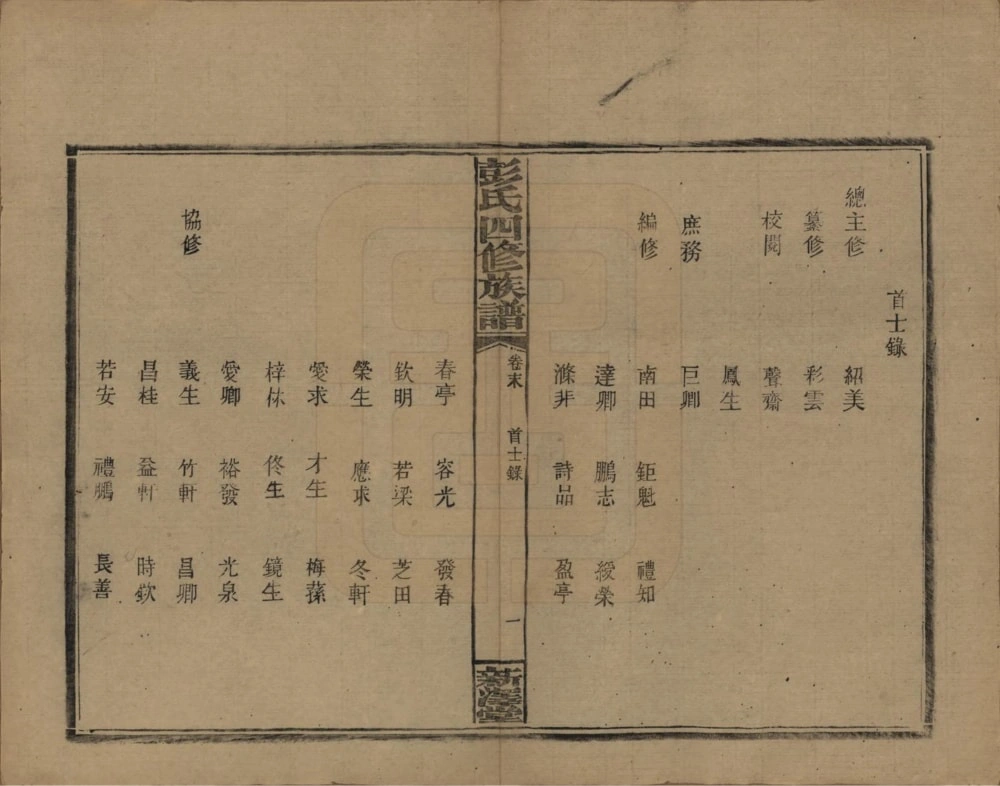 首士錄
總主修 紹美
纂修 彩雲
校閱 聲齋
鳳生
庶務 巨卿
編修 南田 鉅魁 禮知
達卿 鵬志 綬榮
滌非 詩品 盈亭
彭氏四修族譜 卷末 首士錄 一
春亭 容光 發春
欽明 若梁 芝田
榮生 應求 冬軒
愛求 才生 梅蓀
梓林 佟生 鏡生
愛卿 裕發 光泉
協修 義生 竹軒 昌卿
昌桂 益軒 時欽
若安 禮鵬 長善